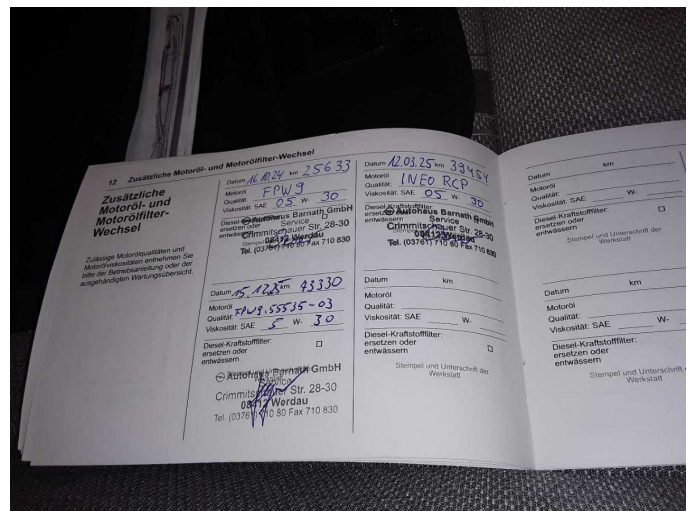 12 Zusätzliche Motoröl- und Motorölfilter-Wechsel
Zusätzliche
Motoröl- und
Motorölfilter-
Wechsel
Zulässige Motorölqualitäten und
Motorölviskositäten entnehmen Sie
bitte der Betriebsanleitung oder der
ausgehändigten Wartungsübersicht.
Datum 16.10.24 km 25633
Motoröl
Qualität: FPW9
Viskosität: SAE 05 W- 30
Diesel-Kraftstofffilter:
ersetzen oder
entwässern
Autohaus Barnath GmbH
Service
Crimmitschauer Str. 28-30
08412 Werdau
Tel. (03761) 710 80 Fax 710 830
Datum 15.12.25 km 43330
Motoröl
Qualität: FPW9.55535-03
Viskosität: SAE 5 W- 30
Diesel-Kraftstofffilter:
ersetzen oder
entwässern
Autohaus Barnath GmbH
Service
Crimmitschauer Str. 28-30
08412 Werdau
Tel. (03761) 710 80 Fax 710 830
Datum 12.03.25 km 39484
Motoröl
Qualität: INFO RCP
Viskosität: SAE 05 W- 30
Diesel-Kraftstofffilter:
ersetzen oder
entwässern
Autohaus Barnath GmbH
Service
Crimmitschauer Str. 28-30
08412 Werdau
Tel. (03761) 710 80 Fax 710 830
Datum km
Motoröl
Qualität:
Viskosität: SAE W-
Diesel-Kraftstofffilter:
ersetzen oder
entwässern
Stempel und Unterschrift der
Werkstatt
Datum km
Motoröl
Qualität:
Viskosität: SAE W-
Diesel-Kraftstofffilter:
ersetzen oder
entwässern
Stempel und Unterschrift der
Werkstatt
Datum km
Motoröl
Qualität:
Viskosität: SAE W-
Diesel-Kraftstofffilter:
ersetzen oder
entwässern
Stempel und Unterschrift
Werkstatt